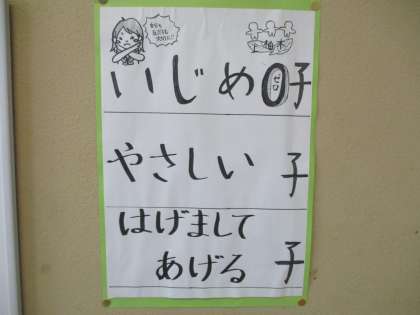 いじめ0子
ゼロ
やさしい 子
はげまして
あげる 子